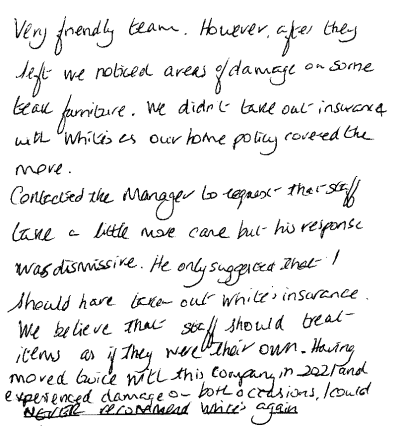 Very friendly team. However, after they
left we noticed areas of damage on some
teak furniture. We didn't take out insurance
with White's as our home policy covered the
move.
Contacted the Manager to request that staff
take a little more care but his response
was dismissive. He only suggested that I
should have taken out White's insurance.
We believe that staff should treat
items as if they were their own. Having
moved twice with this company in 2021 and
experienced damage on both occasions, I could
NEVER recommend White's again